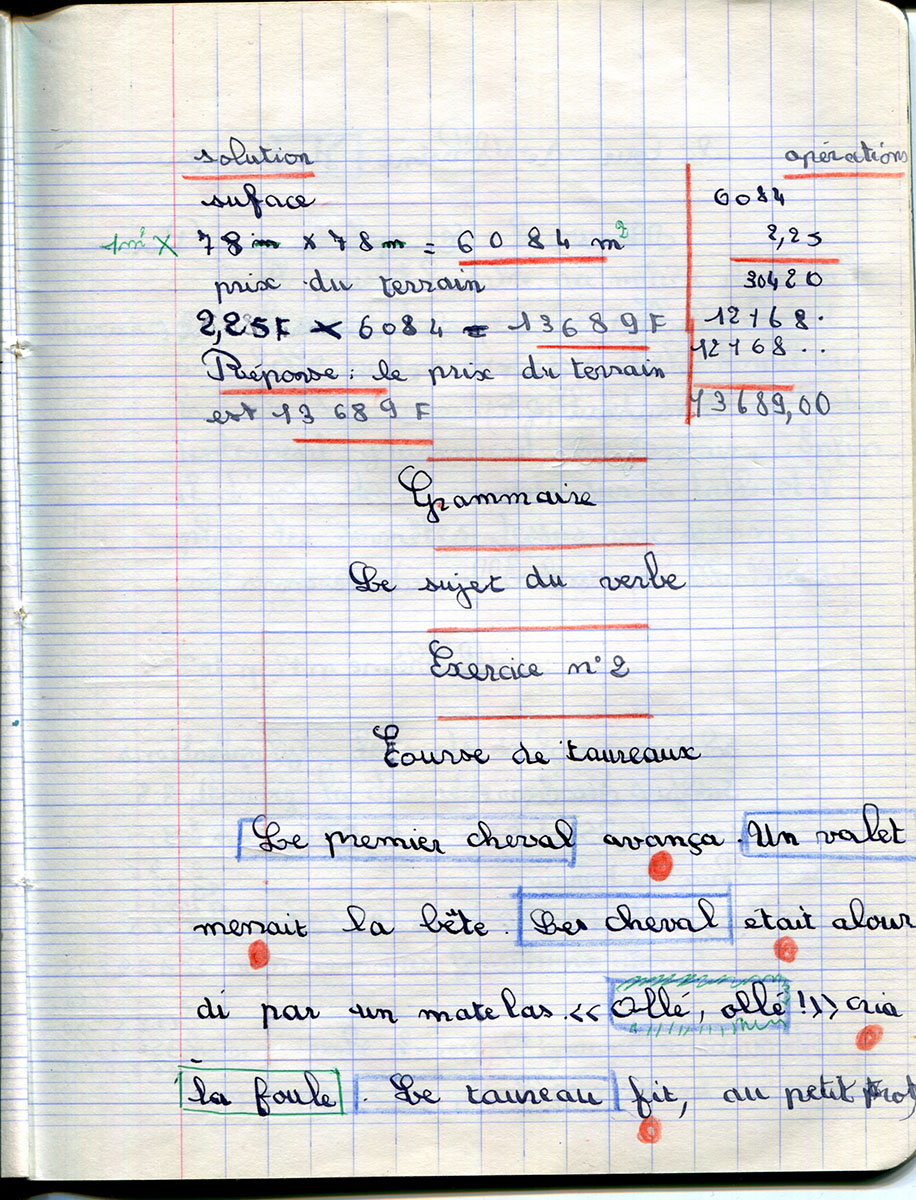 solution
opérations
suface
1m² X 78m × 78m = 6084 m²
prix du terrain
2,25F × 6084 = 13689F
Réponse : le prix du terrain
est 13689 F
6084
2,25
30420
12168.
12168..
13689,00
Grammaire
Le sujet du verbe
Exercice n° 2
Course de taureaux
Le premier cheval avança. Un valet
menait la bête. Les cheval était alour
di par un matelas. << Ollé, ollé !>> cria
la foule. Le taureau fit, au petit trot